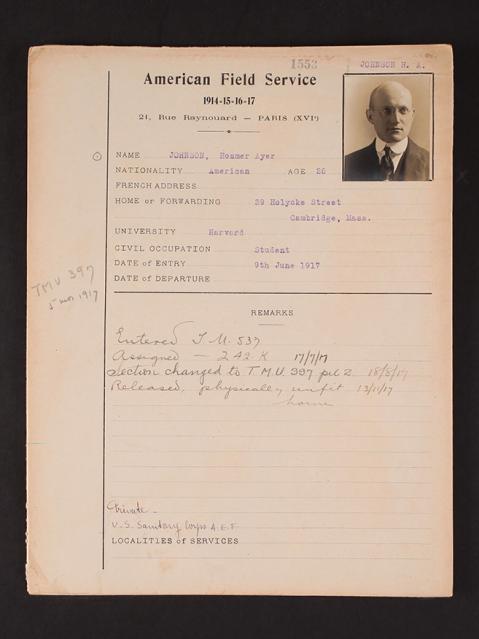 1553
JOHNSON H. A.
American Field Service
1914-15-16-17
21, Rue Raynouard — PARIS (XVIᵉ)
NAME JOHNSON, Hommer Ayer
NATIONALITY American AGE 26
FRENCH ADDRESS
HOME or FORWARDING 29 Holyoke Street
Cambridge, Mass.
UNIVERSITY Harvard
CIVIL OCCUPATION Student
DATE of ENTRY 9th June 1917
DATE of DEPARTURE
TMU 397
5 nov 1917
REMARKS
Entered T.M. 537
Assigned — 242.K 17/7/17
Section changed to T.M.U. 397 pel 2 18/8/17
Released, physically unfit 13/11/17
home
Private -
U.S. Sanitary Corps A.E.F.
LOCALITIES of SERVICES